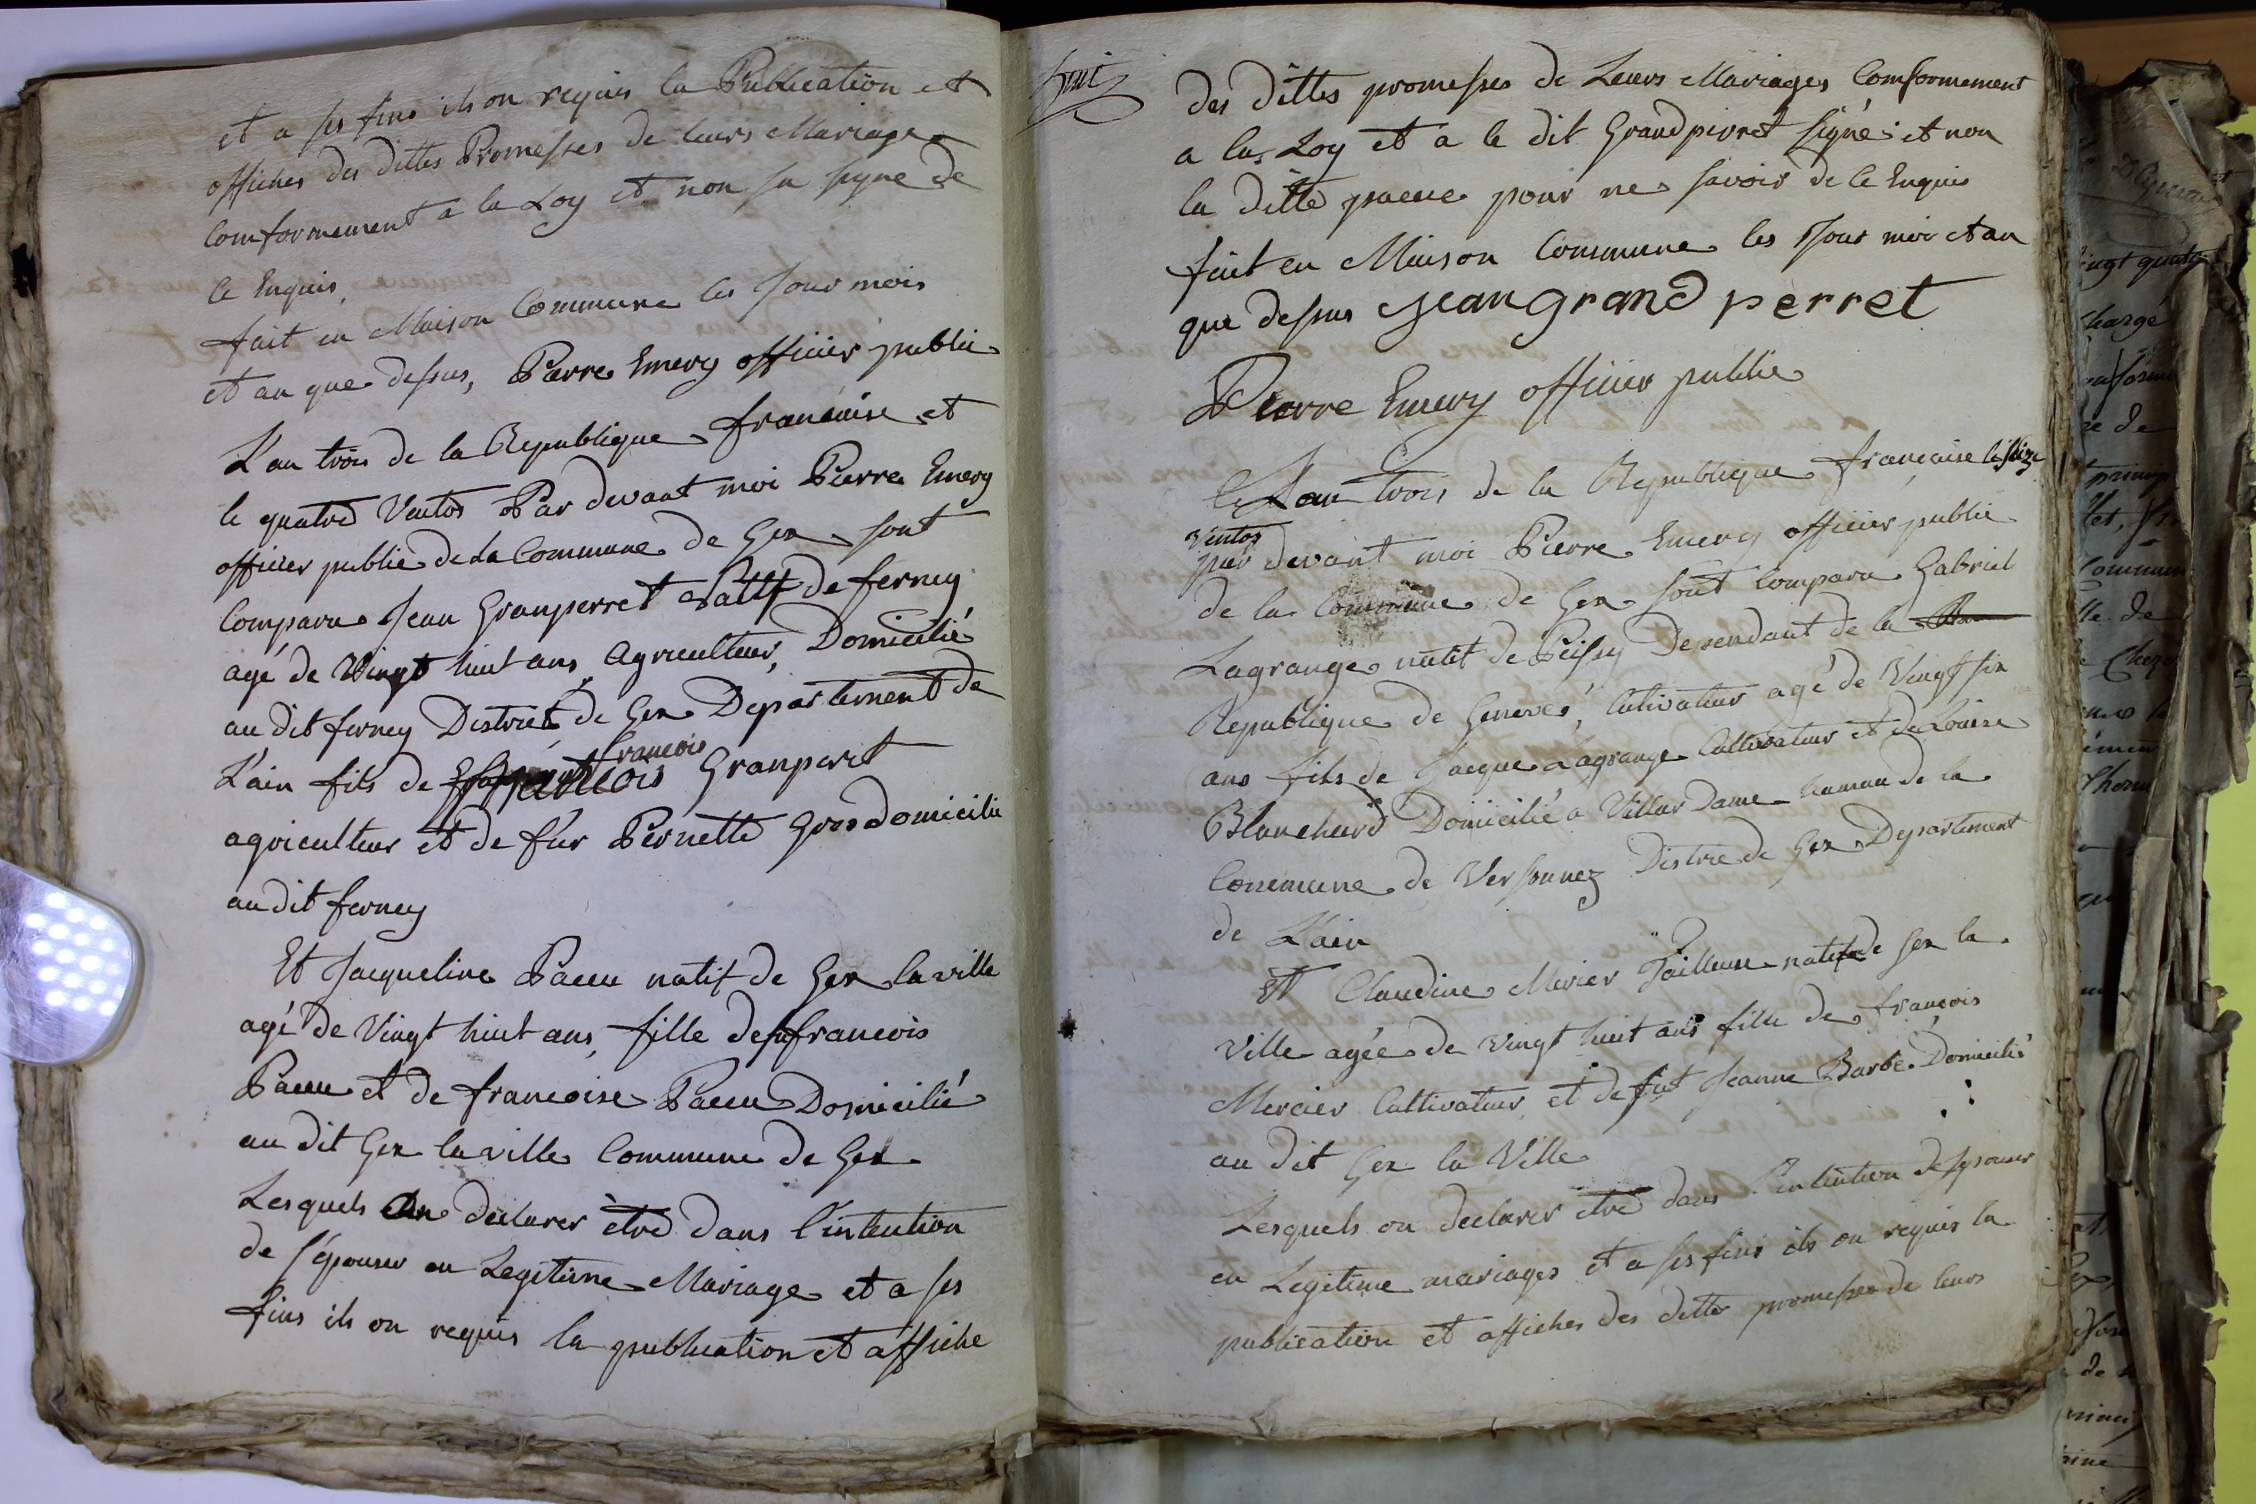 et a ses fins ils on requis la Publication et
affiches des dittes Promesses de leurs Mariage
Comformement a la Loy et non su signe de
ce Enquis
fait en Maison Commune les Jour mois
et an que dessus, Pierre Emery officier public
L'an trois de la Republique francaise et
le quatre Ventos Par devant moi Pierre Emery
officier public de La Commune de Gex sont
Comparu Jean Granperret natif de ferney
agé de Vingt huit ans Agriculteur, Domicilié
au dit ferney District de Gex Departement de
L'ain fils de francois Granperet
agriculteur et de fur Pernette Gros domicilie
au dit ferney
Et Jacqueline Paccu natif de Gex la ville
agé de Vingt huit ans, fille de fu francois
Paccu et de francoise Paccu Domicilié
au dit Gex la ville Commune de Gex
Lesquels On declarer être dans l'intention
de s'épouser en Legitime Mariage et a ses
fins ils on requis la publication et affiche
huit
des dittes promesses de Leurs Mariages Comformement
a la Loy et a le dit Grandpirret signé et non
la ditte pacue pour ne savoir de ce Enquis
fait en Maison Commune les Jour moi et an
que dessus Jean grand perret
Pierre Emery officier public
Le L'an trois de la Republique française le seize
Ventos
par devant moi Pierre Emery officier public
de la Commune de Gex sont Comparu Gabriel
Lagrange natif de Peissy Dependant de la
Republique de Geneve, Cultivateur agé de Vingt six
ans fils de Jacque Lagrange Cultivateur et de Louise
Blanchard Domicilié a Villar Dame hamau de la
Commune de Versonnez Distric de Gex Departement
de L'ain
Et Claudine Mercier Tailleuse natif de Gex la
Ville agée de Vingt huit ans fille de françois
Mercier Cultivateur et de fut Jeanne Barbe Domicilié
au dit Gex la Ville
Lesquels on declarer etre dans l'intention de s'epouser
en Legitime mariages et a ses fins ils on requis la
publication et affiches des dittes promesses de leurs